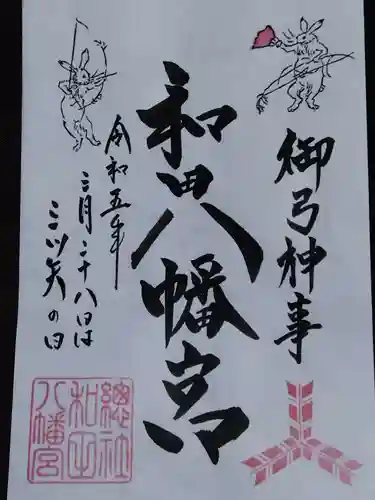 御弓神事
和田八幡宮
令和五年
三月二十八日は
三ツ矢の日
總社
和田
八幡宮